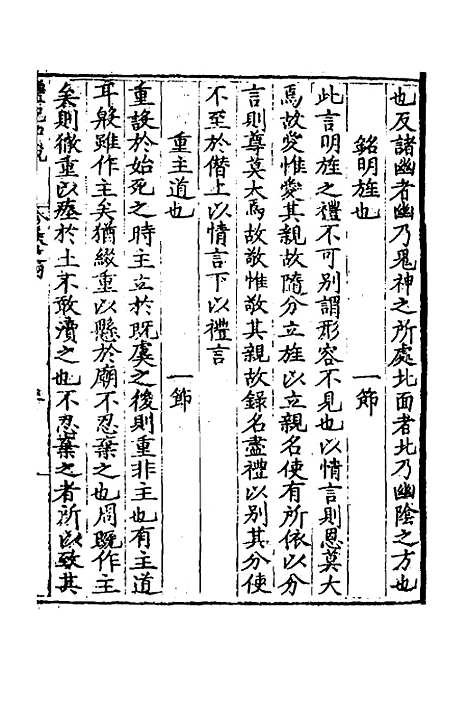 也反諸幽者幽乃鬼神之所處北面者北乃幽陰之方也
銘明旌也　　一節
此言明旌之禮不可別謂形容不見也以情言則恩莫大
焉故愛惟愛其親故隨分立旌以立親名使有所依以分
言則尊莫大焉故敬惟敬其親故録名盡禮以別其分使
不至於僭上以情言下以禮言
重主道也　　一節
重設於始死之時主立於既虞之後則重非主也有主道
耳殷雖作主矣猶綴重以懸於廟不忍棄之也周既作主
矣則徹重以𤸪於土不敢瀆之也不忍棄之者所以致其
禮記中說